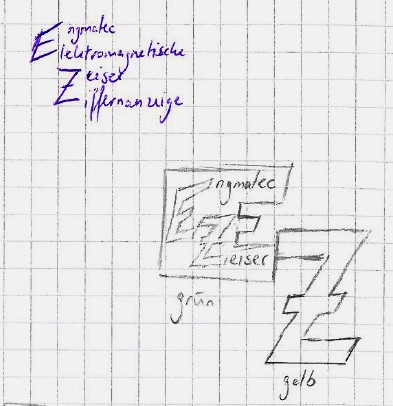 Engmatec
Elektromagnetische
Zeiser
Ziffernanzeige
Engmatec
Zeiser
grün
gelb